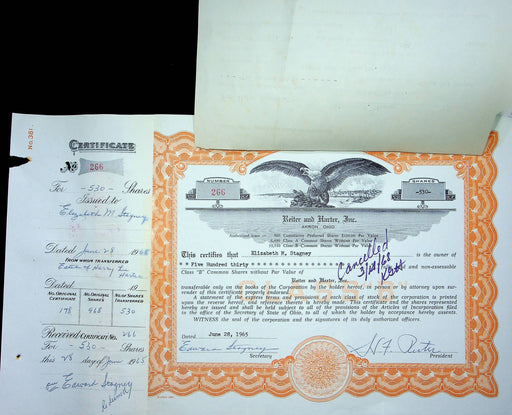 No. 381.
CERTIFICATE
No 266
For -530- Shares
Issued to
Elizabeth M. Stagney
Dated June 28 1965
FROM WHOM TRANSFERRED
Estate of Harry
Harter
Dated 19
NO. ORIGINAL CERTIFICATE NO. ORIGINAL SHARES NO. OF SHARES TRANSFERRED
178 968 530
Received Certificate No. 266
For -530- Shares
this 28 day of June 1965
Edward Stagney
NUMBER
266
SHARES
-530-
Reiter and Harter, Inc.
AKRON, OHIO
This certifies that Elizabeth M. Stagney is the owner of
* Five Hundred thirty * * * * * * * * * * * * * * and non-assessable
Class "B" Common Shares without Par Value of
Reiter and Harter, Inc.
transferable only on the books of the Corporation by the holder hereof, in person or by attorney upon sur-
render of this certificate properly endorsed.
A statement of the express terms and provisions of each class of stock of the corporation is printed
upon the reverse hereof, and reference thereto is hereby made. This certificate and the shares represented
hereby are issued and shall be held subject to all of the provisions of the Articles of Incorporation filed
in the office of the Secretary of State of Ohio, to all of which the holder by acceptance hereby assents.
WITNESS the seal of the corporation and the signatures of its duly authorized officers.
Cancelled
Dated June 28, 1965
Edward Stagney
Secretary
H F Reiter
President